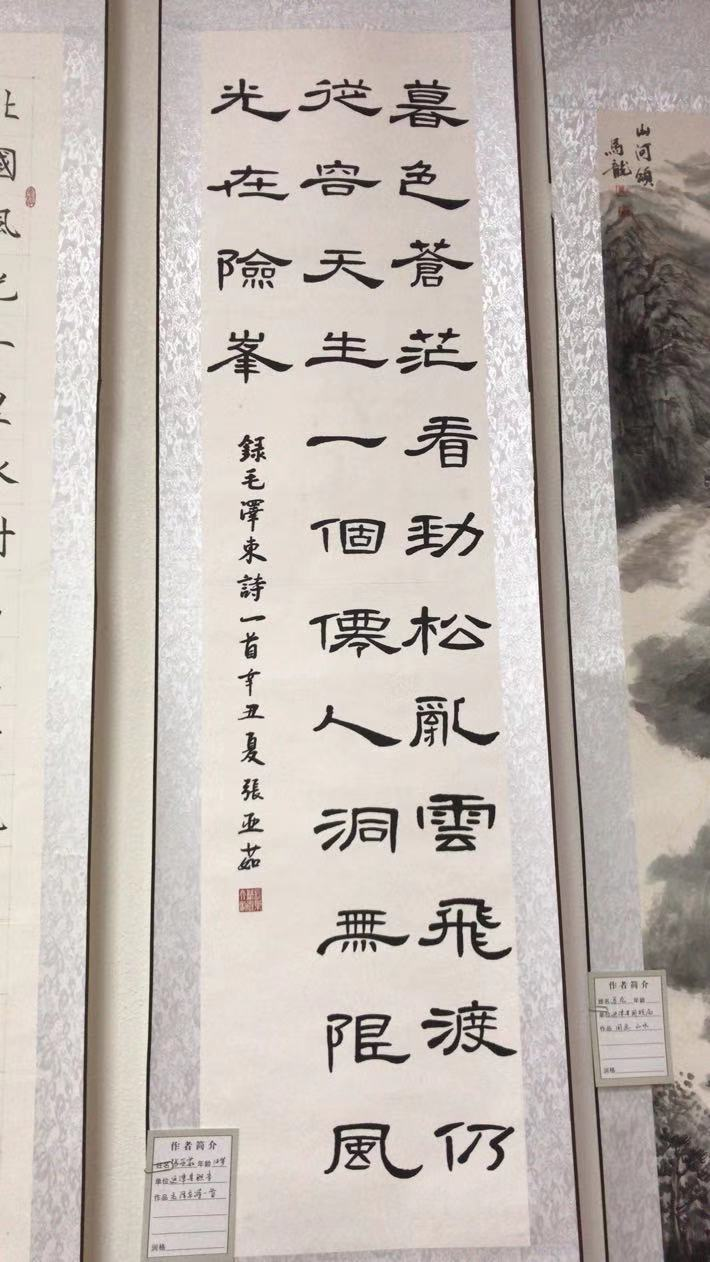 暮色蒼茫看勁松亂雲飛渡仍
從容天生一個僊人洞無限風
光在險峯
録毛澤東詩一首辛丑夏張亚茹
山河頌
馬龍
國風
作者简介
姓名
年龄
单位
作品 毛泽东诗一首
润格
作者简介
姓名 马龙 年龄
单位
作品 国画 山水
润格